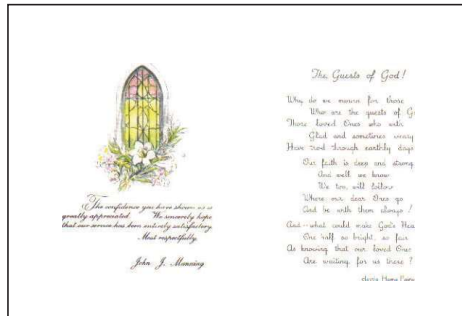 The confidence you have shown us is
greatly appreciated. We sincerely hope
that our service has been entirely satisfactory.
Most respectfully,
John J. Manning
The Guests of God!
Why do we mourn for those
Who are the guests of G
Those loved Ones who with
Glad and sometimes weary
Have trod through earthly days
Our faith is deep and strong
And well we know
We too will follow
Where our dear Ones go
And be with them always!
And - what could make God's Hea
One half so bright, so fair
As knowing that our loved Ones
Are waiting for us there?